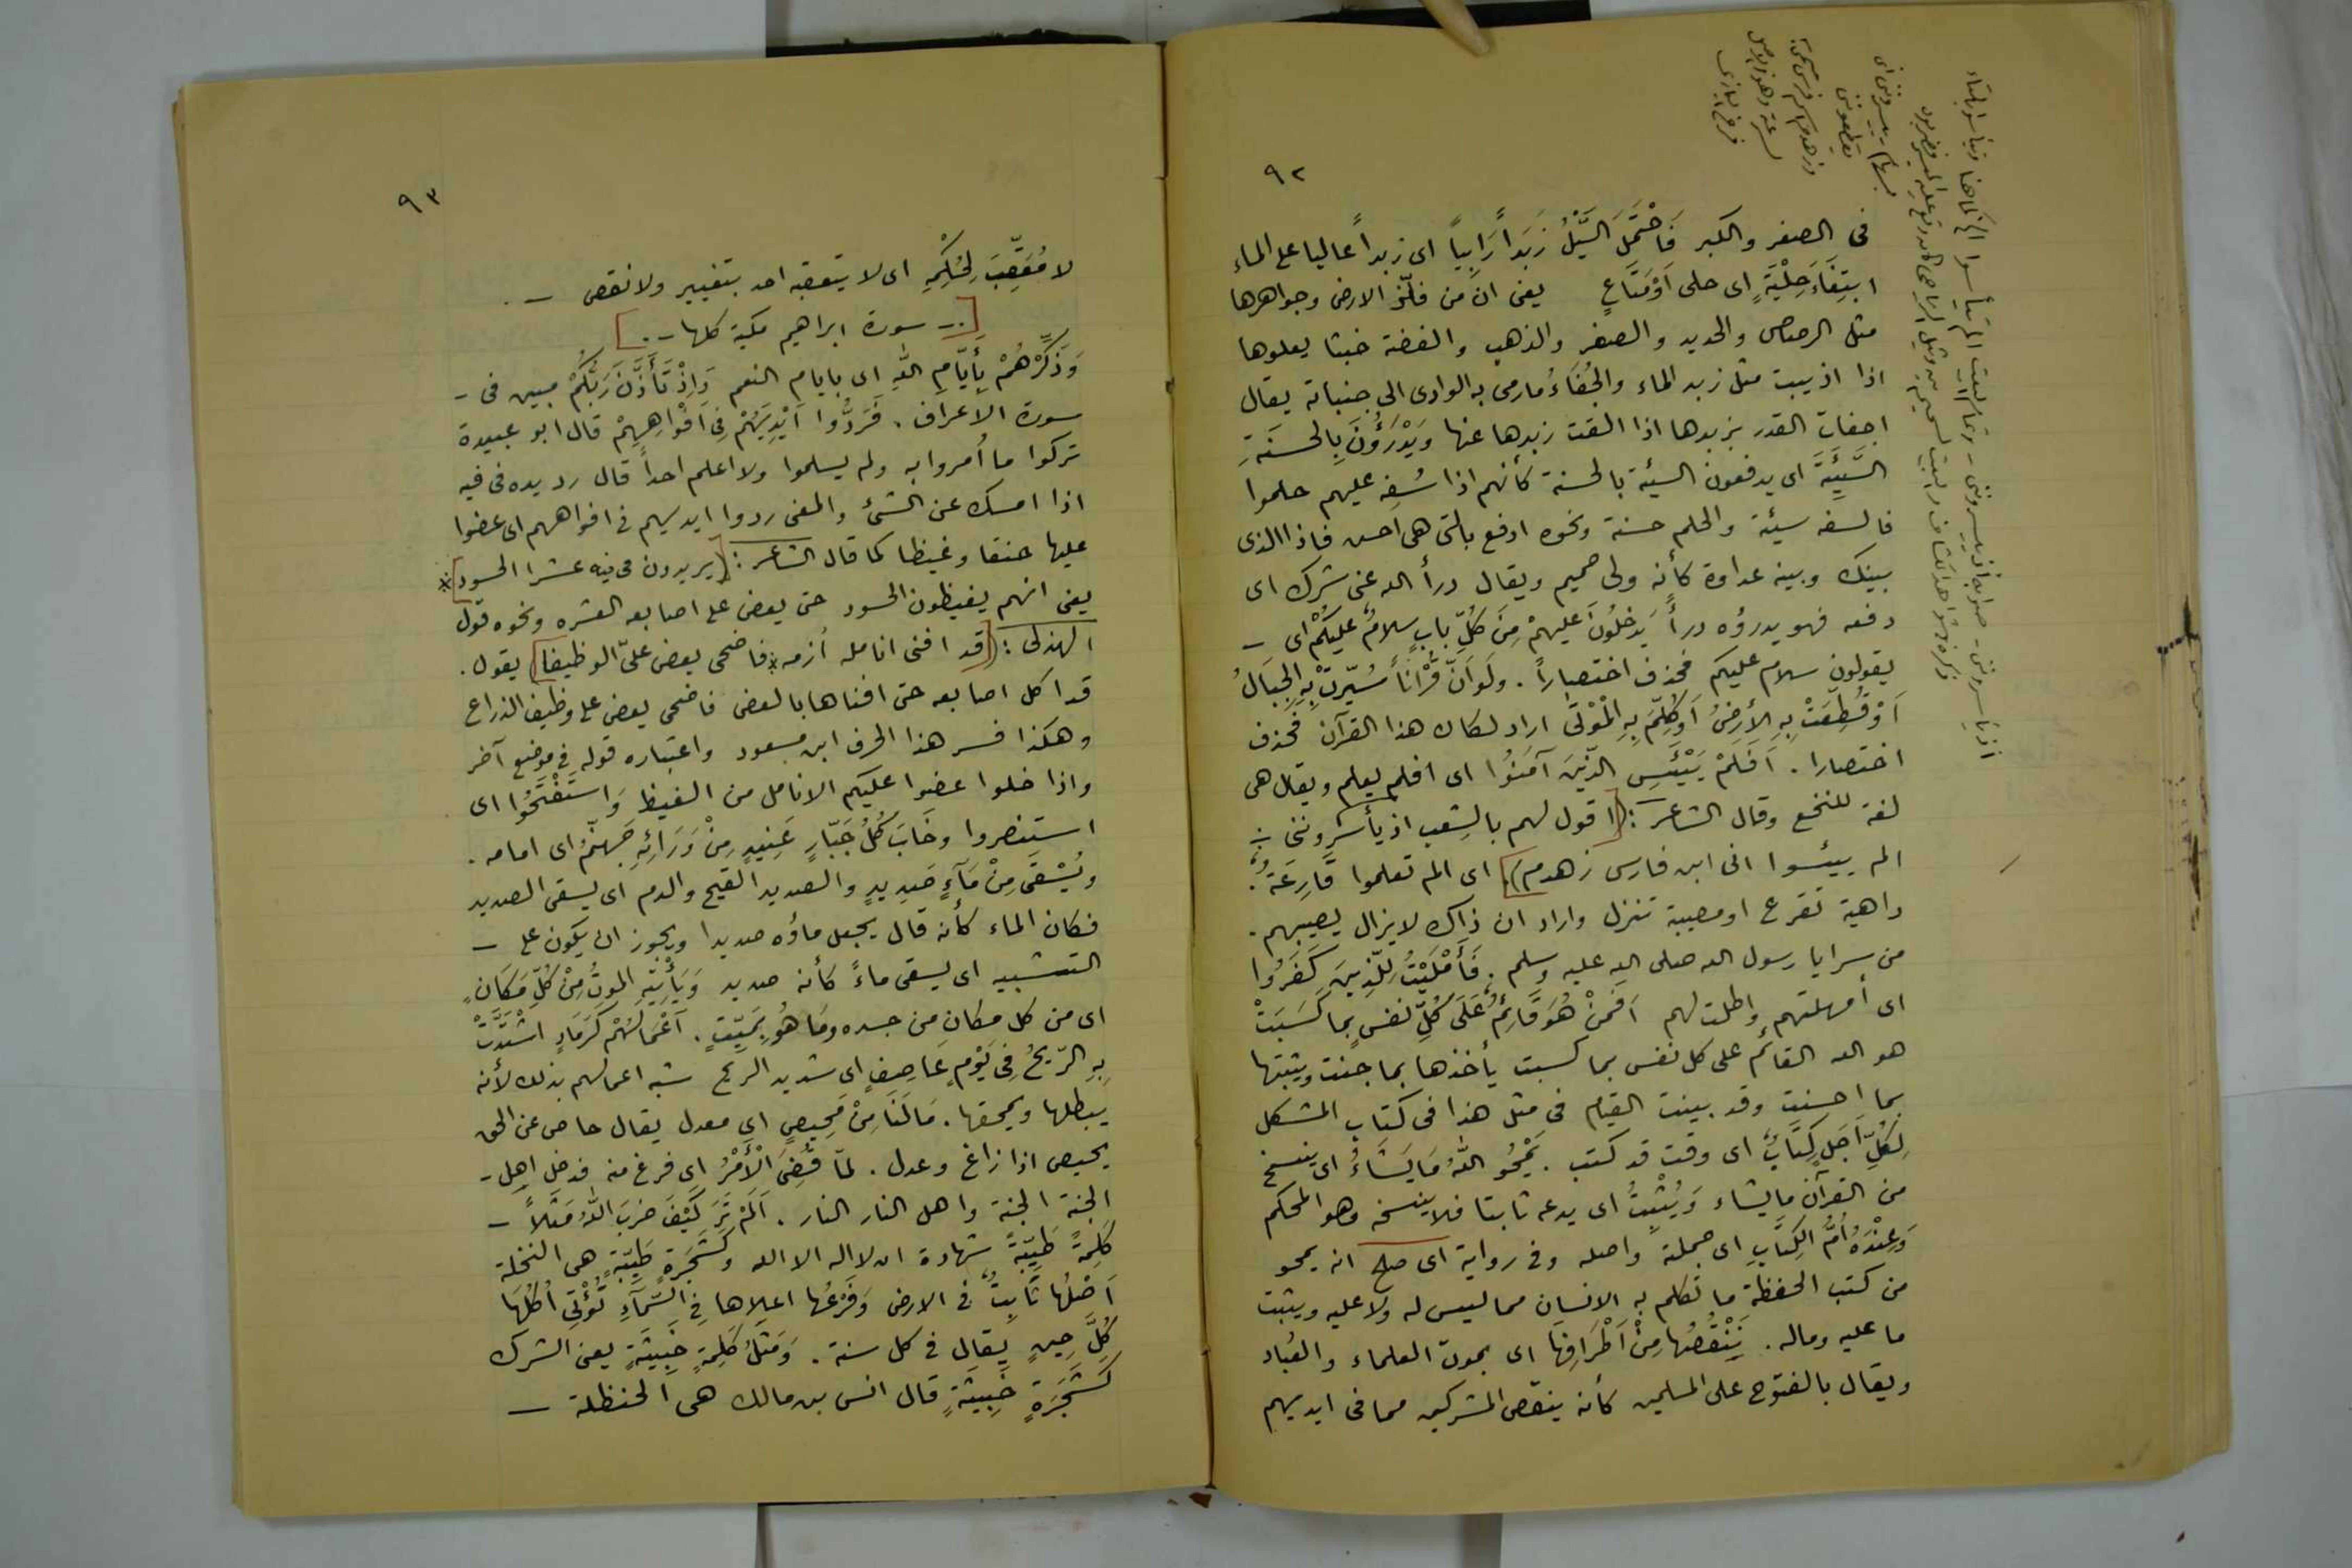 ٩٢
فى الصغر والكبر فَاحْتَمَلَ السَّيْلُ زَبَداً رَابِياً اى زبداً عاليا على الماء
ابتِغَاءَ حِلْيَةٍ اى حلى اَوْ مَتَاعٍ يعنى ان من فلزّ الارض وجواهرها
مثل الرصاص والحديد والصفر والذهب والفضة خبثا يعلوها
اذا اذيبت مثل زبد الماء والجُفَاءُ مارمى به الوادى الى جنباته يقال
اجفأت القدر بزبدها اذا القت زبدها عنها وَيَدْرَؤُنَ بِالحسنَةِ
السَّيِّئَةَ اى يدفعون السيئة بالحسنة كأنهم اذا سُفِه عليهم حلموا
فالسفه سيئة والحلم حسنة ونحوه ادفع بالتى هى احسن فاذا الذى
بينك وبينه عداوة كأنه ولى حميم ويقال درأ الله عنى شرك اى
دفعه فهو يدرؤه درأً يَدخلُونَ عليهمْ مِنَ كُلِّ بابٍ سلامٌ عليكُمْ اى –
يقولون سلام عليكم فحذف اختصاراً . ولَو اَنّ قُرْاناً سُيّرتْ بِهِ الجِبَالُ
اَوْ قُطِعَتْ بِهِ الأرضُ اَوكُلِّمَ بِهِ المَوْتَى اراد لكان هذا القرآن فحذف
اختصارا . اَفَلَمْ يَيْئَسِ الذّينَ آمَنُوا اى افلم يعلم ويقال هى
لغة للنخع وقال الشاعر : (اقول لهم بالشعب اذ يأسروننى ÷
الم ييئسوا انى ابن فارس زهدم) . اى الم تعلموا قَارِعَةٌ :
داهية تقرع او مصيبة تنزل واراد ان ذاك لايزال يصيبهم .
من سرايا رسول الله صلى الله عليه وسلم . فَأَمْلَيْتُ لِلّذِينَ كَفَرُوا
اى أمهلتهم واطلت لهم اَفَمنْ هُوَ قَائِمٌ عَلَى كُلِّ نفسٍ بما كَسَبَتْ
هو الله القائم على كل نفس بما كسبت يأخذها بما جنت ويثبتها
بما احسنت وقد بينت القيام فى مثل هذا فى كتاب المشكل
لِكُلِّ اَجَلٍ كِتَابٌ اى وقت قد كتب . يَمْحُو اللهُ مَايَشَاءُ اى ينسخ
من القرآن مايشاء وَيُثْبِتُ اى يدعه ثابتا فلا ينسخه وهو المحكم
وَعِنْدَهُ اُمُّ الكِتَابِ اى جملة واصله وفى رواية اى صلح انه يمحو
من كتب الحفظة ما تكلم به الانسان مما ليس له ولا عليه ويثبت
ما عليه وماله . نَنْقُصُها مِنْ اَطْرَافِهَا اى بموت العلماء والعُبّاد
ويقال بالفتوح على المسلمين كأنه ينقص المشركين مما فى ايديهم
٩٣
لا مُعَقِّبَ لِحُكْمِهِ اى لا يتعقبه احد بتغيير ولا نقص – .
[ . – سورة ابراهيم مكية كلها – . ]
وَذَكِّرْهُمْ بِأَيَّامِ اللهِ اى بايام النعم وَاِذْ تَأَذَّنَ رَبُّكُمْ مبين فى –
سورة الاعراف . فَرَدُّوا اَيْدِيَهُمْ فِى اَفْوَاهِهِمْ قال ابو عبيدة
تركوا ما أُمروا به ولم يسلموا ولا اعلم احداً قال رد يده فى فيه
اذا امسك عن الشئ والمعنى ردوا ايديهم فى افواههم اى عضوا
عليها حنقا وغيظا كما قال الشاعر : [يريدون فى فيه عشر الحسود]*
يعنى انهم يغيظون الحسود حتى يعض على اصابعه العشره ونحوه قول
الهذلى : [قد افنى انامله أزمه * فاضحى يعض علىّ الوظيفا] يقول .
قد اكل اصابعه حتى افناها بالعض فاضحى يعض على وظيف الذراع
وهكذا فسر هذا الحرف ابن مسعود واعتباره قوله فى موضع آخر
واذا خلوا عضوا عليكم الانامل من الغيظ وَاستَفْتَحُوا اى
استنصروا وخَابَ كُلُ جَبّارٍ عَنِيدٍ مِنْ وَرَائِهِ جَهنّمُ اى امامه .
ويُسْقَى مِنْ مَآءٍ صَدِيدٍ والصديد القيح والدم اى يسقى الصديد
فكان الماء كأنه قال يجعل ماؤه صديدا ويجوز ان يكون على –
التشبيه اى يسقى ماءً كأنه صديد وَيَأْتِيْهِ الموتُ مِنْ كُلِّ مَكَانٍ
اى من كل مكان من جسده وَمَا هُوَ بِمَيِّتٍ . اَعْمَالُهُمْ كَرَمَادٍ اشْتَدَّتْ
بِهِ الرّيحُ فِى يَوْمٍ عَاصِفٍ اى شديد الريح شبه اعمالهم بذلك لأنه
يبطلها ويمحقها . مَالَنَا مِنْ مَحِيصٍ اى معدل يقال حاص عن الحق
يحيص اذا زاغ وعدل . لمّا قُضِىَ الْأَمْرُ اى فرغ منه فدخل اهل –
الجنة الجنة واهل النار النار . اَلَمْ تَرَ كَيْفَ ضَربَ اللهُ مَثَلاً –
كَلِمةً طَيِّبَةً شهادة ان لا اله الا الله وكَشَجَرةٍ طَيِّبَةٍ هى النخلة
اَصْلُها ثَابِتٌ فى الارض وَفَرْعُها اعلاها فِى السّمَآءِ تُؤْتِى اُكُلَهَا
كُلَّ حِينٍ يقال فى كل سنة . وَمَثَلُ كَلِمَةٍ خَبِيثَةٍ يعنى الشرك
كَشَجَرَةٍ خَبِيثَةٍ قال انس بن مالك هى الحنظلة –